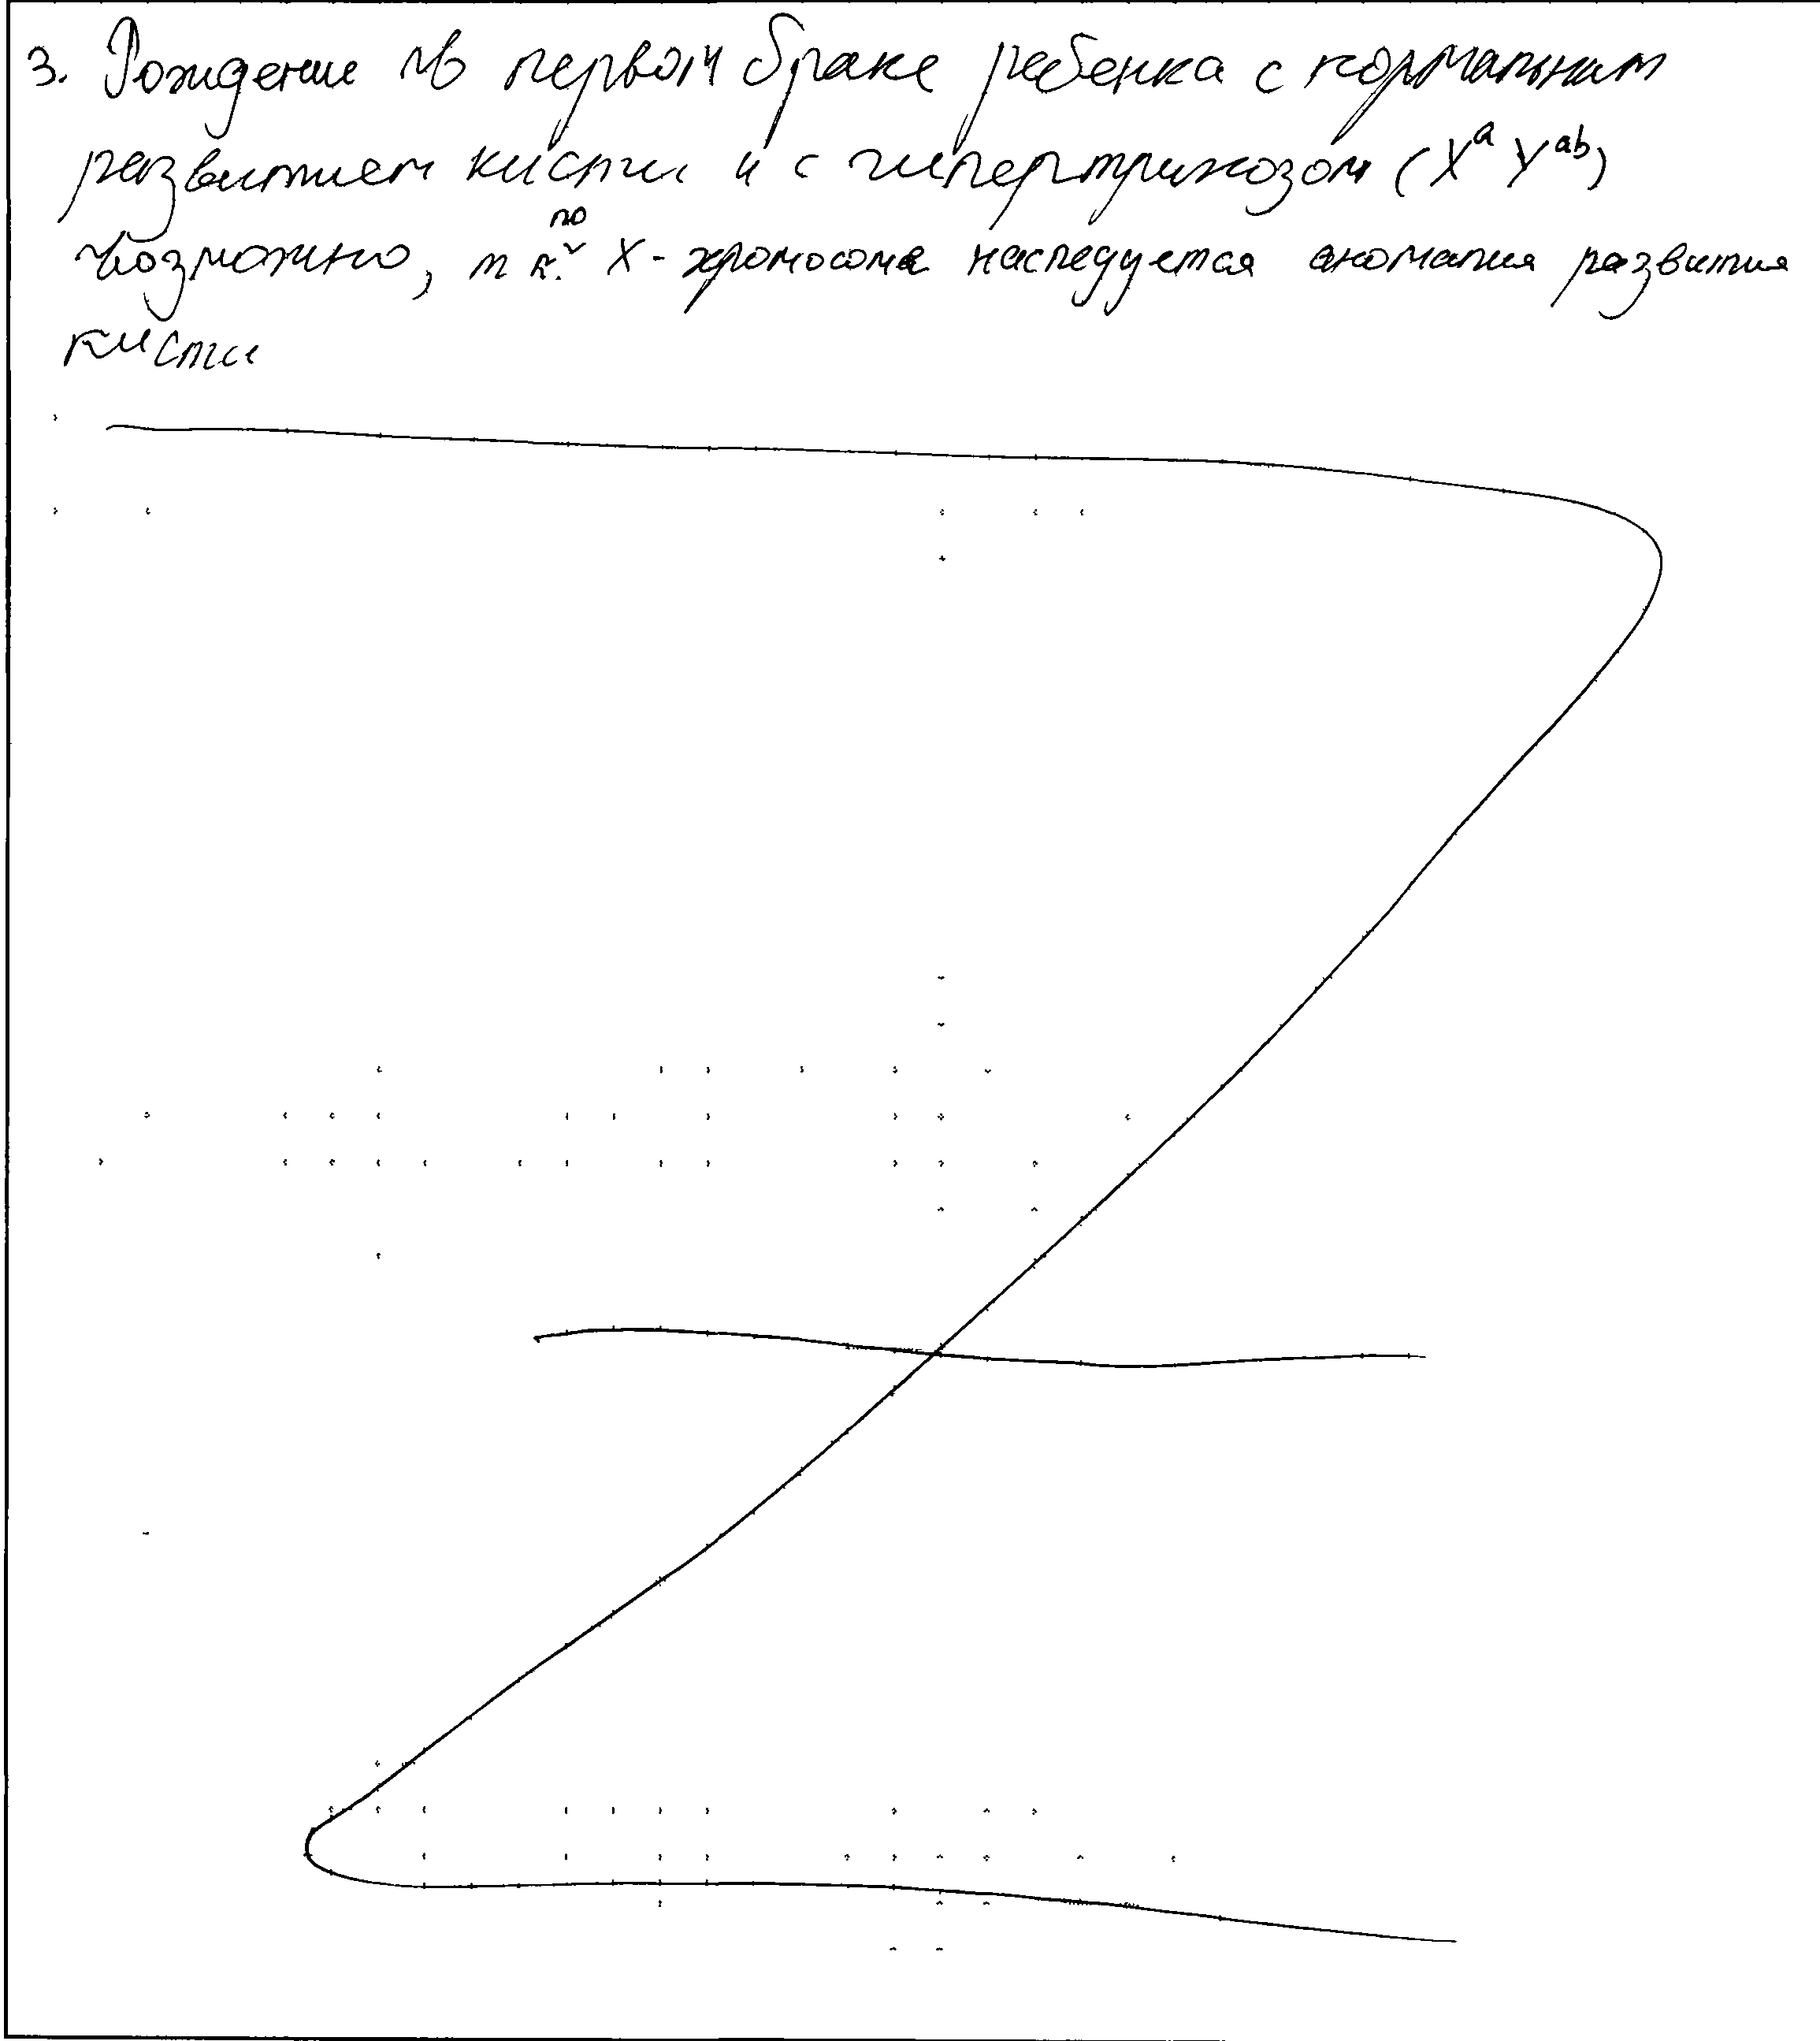 3. Рождение в первом браке ребенка с нормальным
развитием кисти и с гипертрихозом (X^a Y^ab)
возможно, т.к. по X-хромосоме наследуется аномалия развития
кисти